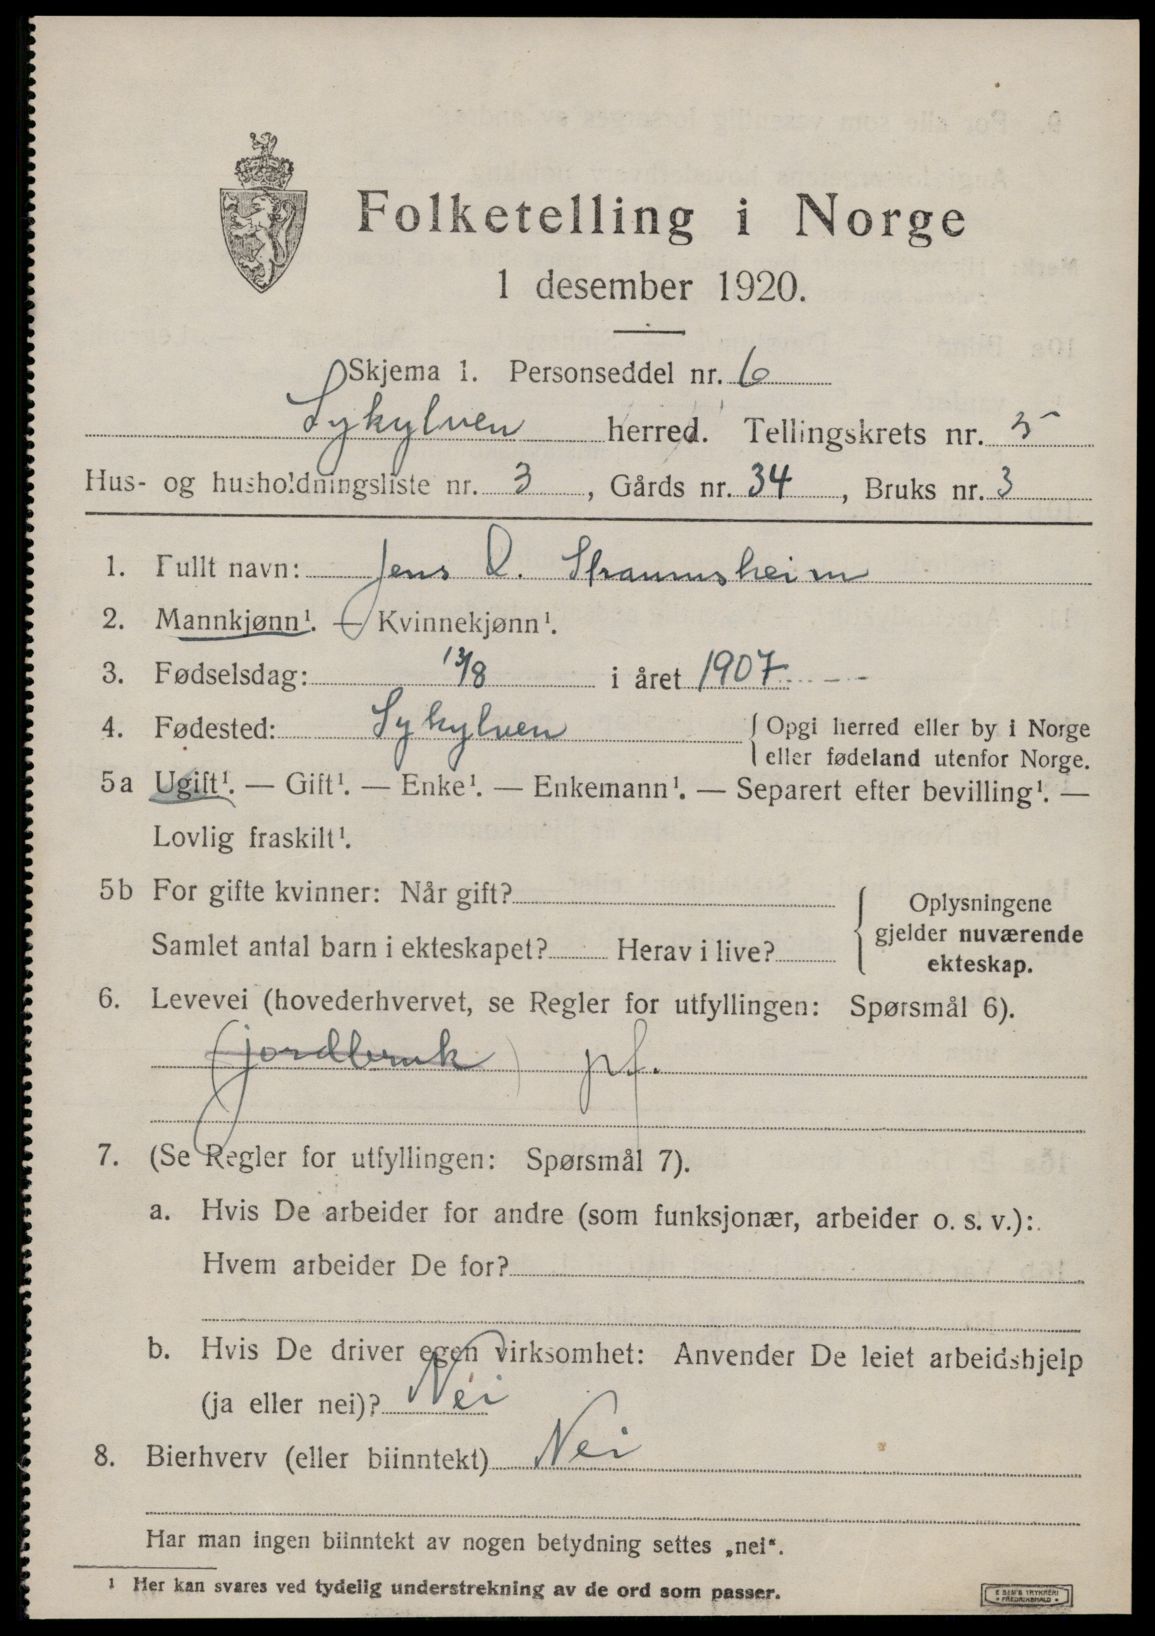 Folketelling i Norge
1 desember 1920.
Skjema 1. Personseddel nr. 6
Sykylven herred. Tellingskrets nr. 5
Hus- og husholdningsliste nr. 3, Gårds nr. 34, Bruks nr. 3
1. Fullt navn: Jens O. Straumsheim
2. Mannkjønn¹. — Kvinnekjønn¹.
3. Fødselsdag: 13/8 i året 1907
4. Fødested: Sykylven {Opgi herred eller by i Norge
eller fødeland utenfor Norge.
5a Ugift¹. — Gift¹. — Enke¹. — Enkemann¹. — Separert efter bevilling¹. —
Lovlig fraskilt¹.
5b For gifte kvinner: Når gift?
Samlet antal barn i ekteskapet? Herav i live?
{Oplysningene
gjelder nuværende
ekteskap.
6. Levevei (hovederhvervet, se Regler for utfyllingen: Spørsmål 6).
(jordbruk) pf.
7. (Se Regler for utfyllingen: Spørsmål 7).
a. Hvis De arbeider for andre (som funksjonær, arbeider o. s. v.):
Hvem arbeider De for?
b. Hvis De driver egen virksomhet: Anvender De leiet arbeidshjelp
(ja eller nei)? Nei
8. Bierhverv (eller biinntekt) Nei
Har man ingen biinntekt av nogen betydning settes „nei“.
¹ Her kan svares ved tydelig understrekning av de ord som passer.
E SEM'S TRYKKERI
FREDRIKSHALD